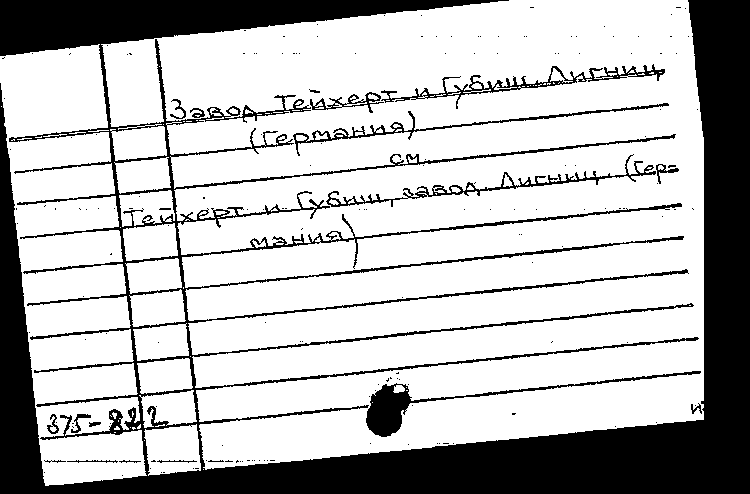 Завод Тейхерт и Губиш. Лигниц
(Германия)
см.
Тейхерт и Губиш, завод. Лигниц. (Гер=
мания)
375-822